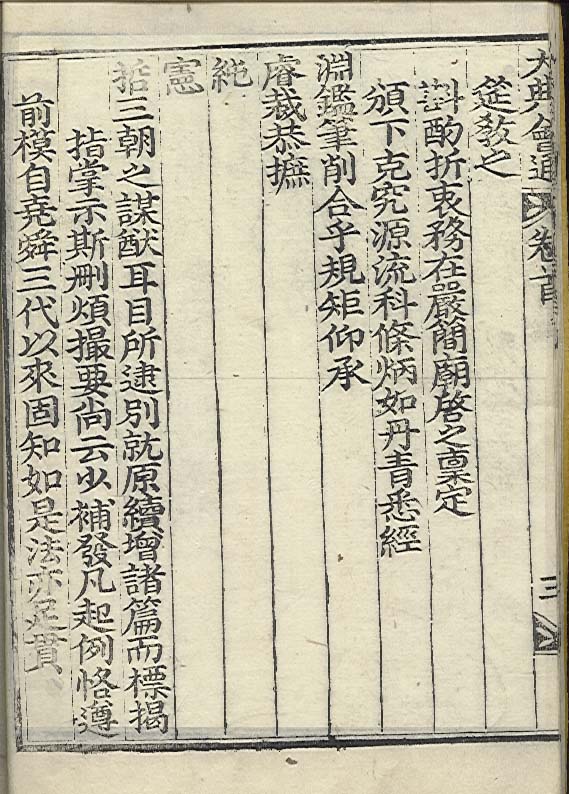 大典會通 卷首 三
筵敎之
斟酌折衷務在嚴簡廟啓之稟定
頒下克究源流科條炳如丹靑悉經
淵鑑筆削合乎規矩仰承
睿裁恭摭
純
憲
哲三朝之謀猷耳目所逮別就原續增諸篇而標揭
指掌示斯刪煩撮要尙云少補發凡起例恪遵
前模自堯舜三代以來固知如是法亦足貫